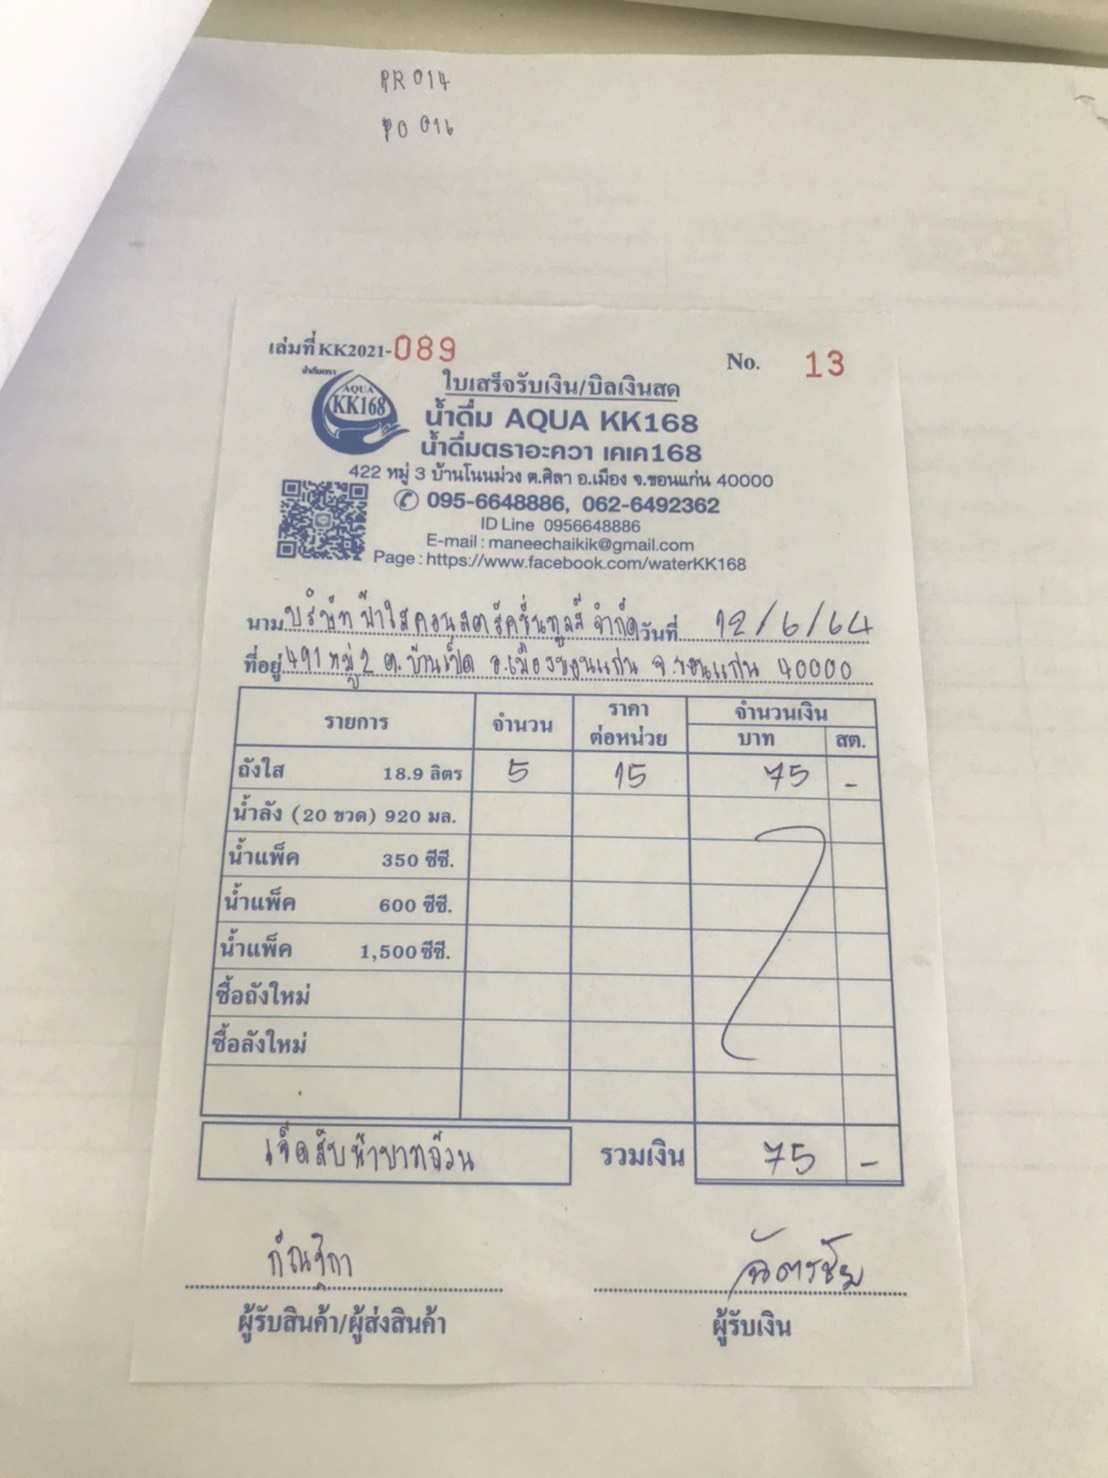 PR 014
PO 016
เล่มที่ KK2021-089 No. 13
น้ำดื่มตรา
AQUA
KK168
ใบเสร็จรับเงิน/บิลเงินสด
น้ำดื่ม AQUA KK168
น้ำดื่มตราอะควา เคเค168
422 หมู่ 3 บ้านโนนม่วง ต.ศิลา อ.เมือง จ.ขอนแก่น 40000
095-6648886, 062-6492362
ID Line 0956648886
E-mail : maneechaikik@gmail.com
Page : https://www.facebook.com/waterKK168
นาม บริษัท ฟ้าใสคอนสตรัคชั่นทูลส์ จำกัด วันที่ 12/6/64
ที่อยู่ 491 หมู่ 2 ต.บ้านเป็ด อ.เมืองขอนแก่น จ.ขอนแก่น 40000
รายการ จำนวน ราคาต่อหน่วย จำนวนเงิน
บาท สต.
ถังใส 18.9 ลิตร 5 15 75 -
น้ำลัง (20 ขวด) 920 มล.
น้ำแพ็ค 350 ซีซี.
น้ำแพ็ค 600 ซีซี.
น้ำแพ็ค 1,500 ซีซี.
ซื้อถังใหม่
ซื้อลังใหม่
เจ็ดสิบห้าบาทถ้วน รวมเงิน 75 -
ฉัตรชัย
ผู้รับสินค้า/ผู้ส่งสินค้า ผู้รับเงิน